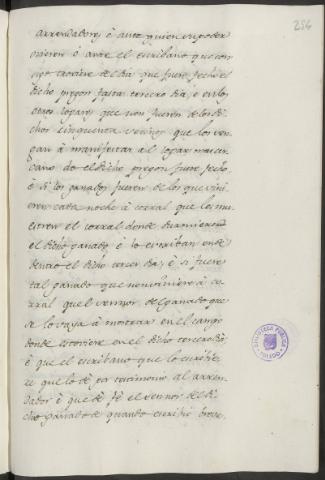 256
arrendadores é ante quien su poder
ovieren ó ante el escribano que con-
sigo traxiere del dia que fuere fecho el
dicho pregon fasta tercero dia, é en los
otros logares que non fueren de los di-
chos cinquenta vecinos que los ven-
gan á manifestar al logar mas cer-
cano do el dicho pregon fuere fecho,
é si los ganados fueren de los que vini-
eren cada noche á corral que les mu-
estren el corral donde durmieren
el dicho ganado é lo escriban ende
dentro el dicho tercer dia; é si fuere
tal ganado que non viniere á co-
rral quel sennor del ganado que
se lo vaya á mostrar en el campo
donde estoviere en el dicho tercero dia
é que el escribano que lo escribie-
re que lo dé por testimonio al arren-
dador é que dé fé el sennor del di-
cho ganado de quando escribió
BIBLIOTECA PUBLICA
TOLEDO